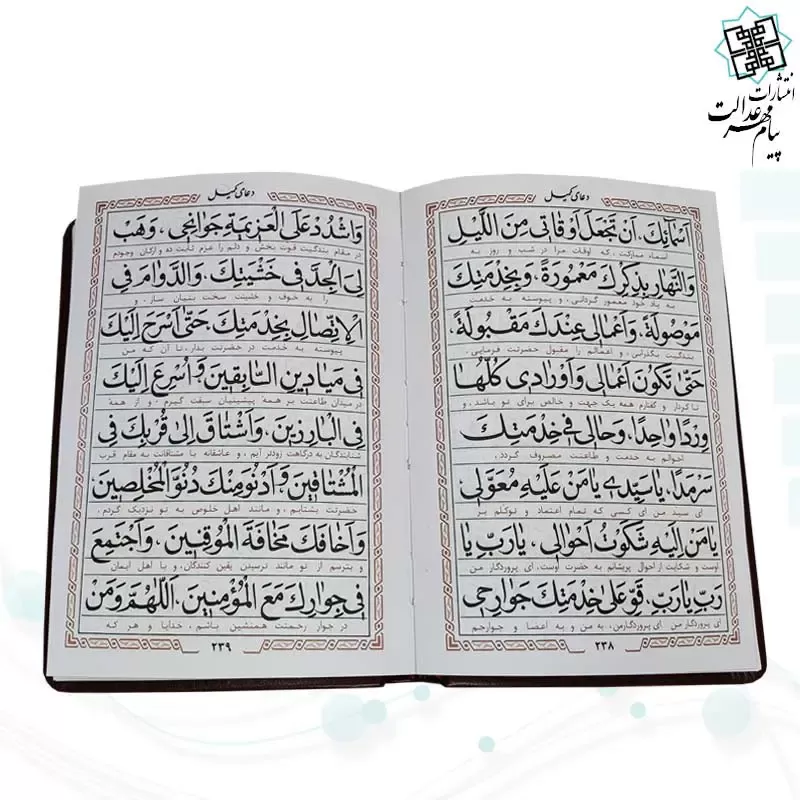 انتشارات
پیام مهر عدالت
دعای کمیل
اَسْمآئِكَ، اَنْ تَجْعَلَ اَوْقاتى مِنَ اللَّيْلِ
اسماء مبارکت، که اوقات مرا در شب و روز به
وَالنَّهارِ بِذِكْرِكَ مَعْمُورَةً، وَبِخِدْمَتِكَ
به یاد خود معمور گردانی، و پیوسته به خدمت
مَوْصُولَةً، وَاَعْمالى عِنْدَكَ مَقْبُولَةً،
بندگیت بگذرانی، و اعمالم را مقبول حضرتت فرمایی،
حَتّى تَكُونَ اَعْمالى وَاَوْرادى كُلُّها
تا کردار و گفتارم همه یک جهت و خالص برای تو باشد، و
وِرْداً واحِداً، وَحالى فى خِدْمَتِكَ
احوالم به خدمت و طاعتت مصروف گردد.
سَرْمَداً، ياسَيِّدى يامَنْ عَلَيْهِ مُعَوَّلى
ای سید من ای کسی که تمام اعتماد و توکلم بر
يامَنْ اِلَيْهِ شَكَوْتُ اَحْوالى، يارَبِّ يا
اوست و شکایت از احوال پریشانم به حضرت اوست، ای پروردگار من
رَبِّ يارَبِّ، قَوِّ عَلى خِدْمَتِكَ جَوارِحى
ای پروردگار من ای پروردگارمن، به من و به اعضا و جوارحم
۲۳۸
دعای کمیل
وَاشْدُدْ عَلَى الْعَزيمَةِ جَوانِحى، وَهَبْ
در مقام بندگیت قوت بخش و دلم را عزم ثابت ده و ارکان وجودم
لِىَ الْجِدَّ فى خَشْيَتِكَ، وَالدَّوامَ فِى
را به خوف و خشیت سخت بنیان ساز، و
الْاِتِّصالِ بِخِدْمَتِكَ، حَتّى اَسْرَحَ اِلَيْكَ
پیوسته به خدمت در حضرتت بدار، تا آن که من
فى مَيادينِ السّابِقينَ، وَاُسْرِعَ اِلَيْكَ
در میدان طاعتت بر همهٔ پیشینیان سبقت گیرم، و از همه
فِى الْبارِزينَ، وَاَشْتاقَ اِلى قُرْبِكَ فِى
شتابندگان به درگاهت زودتر آیم، و عاشقانه با مشتاقانت به مقام قرب
الْمُشْتاقينَ وَاَدْنُوَ مِنْكَ دُنُوَّ الْمُخْلِصينَ،
حضرتت بشتابم، و مانند اهل خلوص به تو نزدیک گردم،
وَاَخافَكَ مَخافَةَ الْمُوقِنينَ، وَاَجْتَمِعَ
و بترسم از تو مانند ترسیدن یقین کنندگان، و با اهل ایمان
فى جِوارِكَ مَعَ الْمُؤْمِنينَ، اَللّهُمَّ وَمَنْ
در جوار رحمتت همنشین باشم، خدایا و هر که
۲۳۹